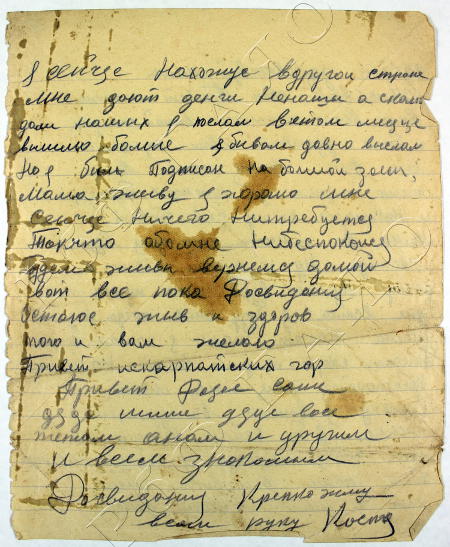 я сейчас нахожус вдругой стране
мне дают денги ненаши а
дали наших я послал в етом месце
вышлю болше я бивам давно выслал
Но я был подписан на болшой заем,
Мама живу я хорошо мне
сейчас ничего нитребуется
Такчто обомне нибеспокойся
будем живы вернемся домой
вот все пока Досвидания
Остаюс жыв и здоров
того и вам желаю
Привет искарпатских гор
Привет Феде саше
дяде мише дяде васи
тетям аням и другим
и всем знакомым
Досвидания Крепко жму
всем руку Костя